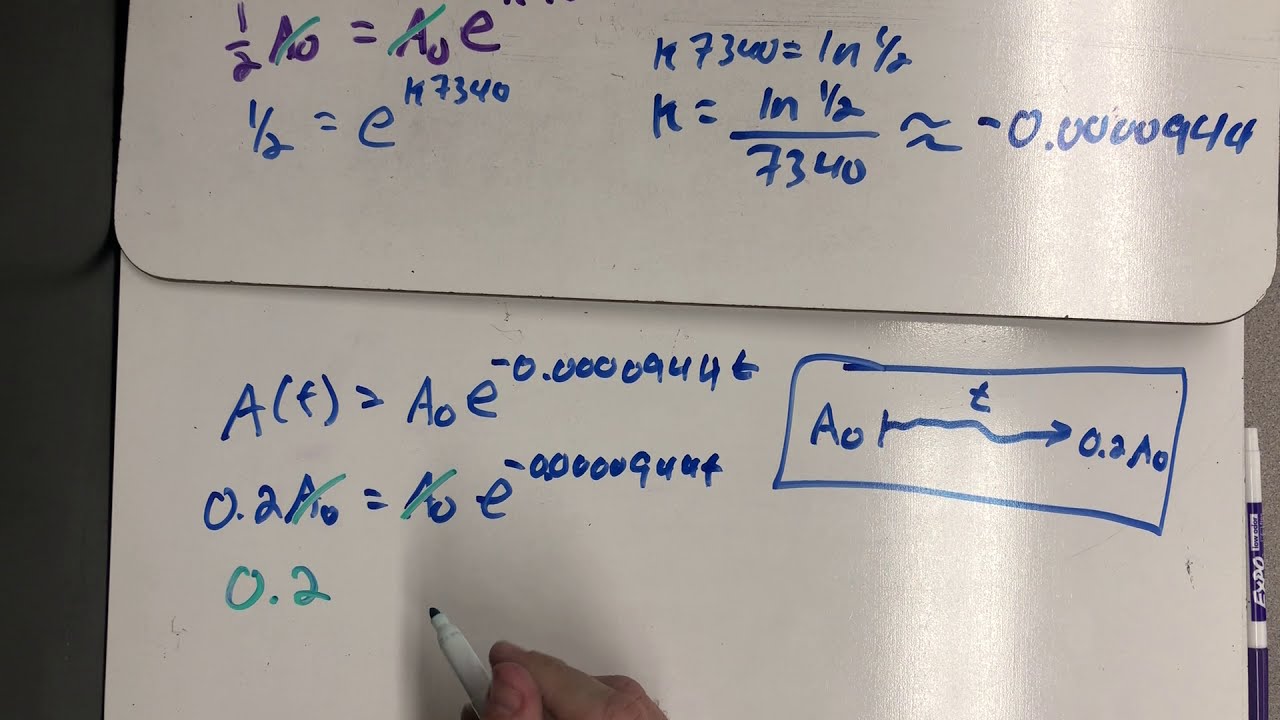 ½A₀ = A₀e
½ = e^k7340
k7340 = ln ½
k = ln ½ / 7340 ≈ -0.0000944
A(t) = A₀e^-0.0000944t
0.2A₀ = A₀e^-0.0000944t
0.2
t
A₀ → 0.2A₀
EXPO
low odor